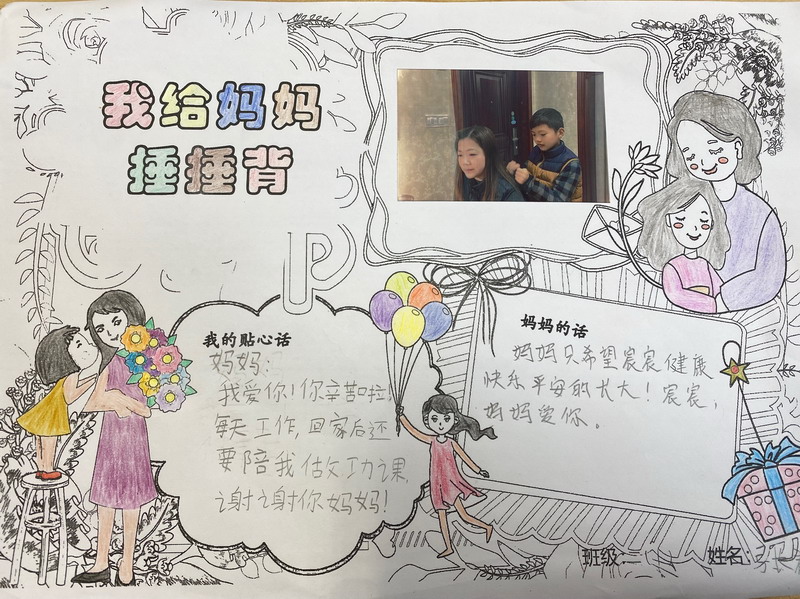 我给妈妈
捶捶背
我的贴心话
妈妈：
我爱你！你辛苦啦！
每天工作，回家后还
要陪我做功课
谢谢你妈妈！
妈妈的话
妈妈只希望宸宸健康
快乐平安的长大！宸宸，
妈妈爱你。
班级：二
姓名：